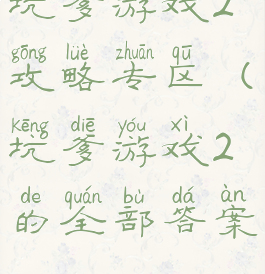 坑爹游戏2
gōng lüè zhuān qū
攻略专区（
kēng diē yóu xì
坑爹游戏2
de quán bù dá àn
的全部答案